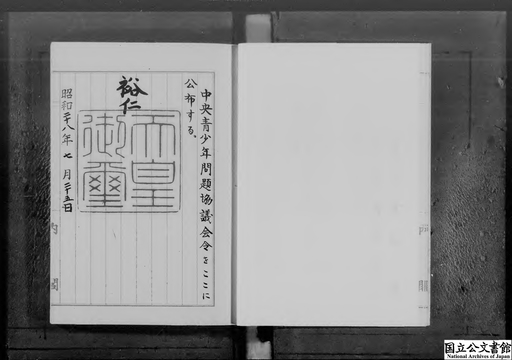 中央青少年問題協議会令をここに
公布する。
裕仁
天皇
御璽
昭和二十八年七月二十五日
内閣
国立公文書館
National Archives of Japan